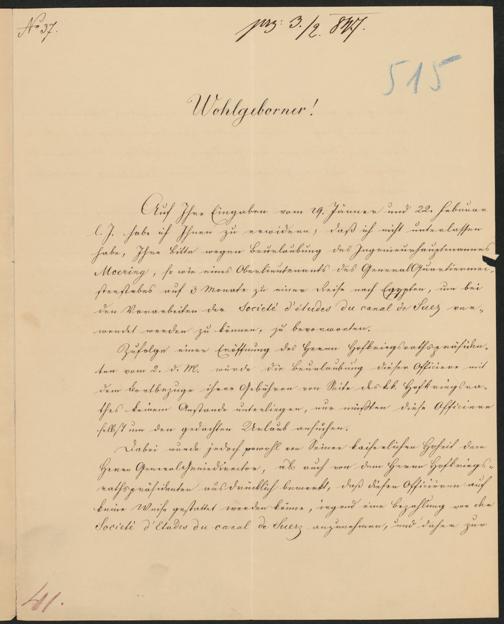 No 37.
prs: 3./2. 847.
515
Wohlgeborner!
Auf Ihre Eingaben vom 29. Jänner und 22. Februar
l. J. habe ich Ihnen zu erwidern, daß ich nicht unterlassen
habe, Ihre Bitte wegen Beurlaubung des Ingenieurhauptmannes
Moering, so wie eines Oberlieutenants des Generalquartiermei-
sterstabes auf 3 Monate zu einer Reise nach Egypten, um bei
den Vorarbeiten der Societé d'études du canal de Suez ver-
wendet werden zu können, zu bevorworten.
Zufolge einer Eröffnung des Herrn Hofkriegsrathspräsiden-
ten vom 2. d. M. würde die Beurlaubung dieser Officiere mit
dem Fortbezuge ihrer Gebühren von Seite des kk. Hofkriegsra-
thes keinem Anstande unterliegen, nur müßten diese Officiere
selbst um den gedachten Urlaub ansuchen.
Dabei wurde jedoch sowohl von Seiner kaiserlichen Hoheit dem
Herrn Generalgeniedirector, als auch von dem Herrn Hofkriegs-
rathspräsidenten ausdrücklich bemerkt, daß diesen Officieren auf
keine Weise gestattet werden könne, irgend eine Bezahlung von der
Societé d'études du canal de Suez anzunehmen, und daher zur
41.